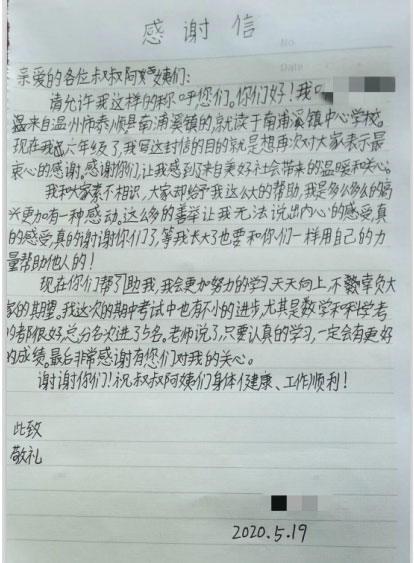 感谢信
No
Date
亲爱的各位叔叔阿姨们:
请允许我这样的称呼您们。你们好!我
温来自温州师泰顺县南浦溪镇的,就读于南浦溪镇中心学校。
现在我六年级了,我写这封信的目的就是想再次对大家表示最
衷心的感谢。感谢你们,让我感到了来自美好社会带来的温暖和关心。
我和大家素不相识,大家却给予我这么大的帮助,我是多么多么的高
兴更加有一种感动。这么多的善举让我无法说出内心的感受,真
的感受,真的谢谢你们了,等我长大了也要和你们一样用自己的力
量帮助他人的!
现在你们帮助我,我会更加努力的学习,天天向上,不辜负大
家的期望。我这次的期中考试中也有不小的进步,尤其是数学和科学考
的都很好,总分名次进了5名。老师说了,只要认真的学习,一定会有更好
的成绩。最后非常感谢有您们对我的关心。
谢谢你们!祝叔叔阿姨们身体健康、工作顺利!
此致
敬礼
2020.5.19